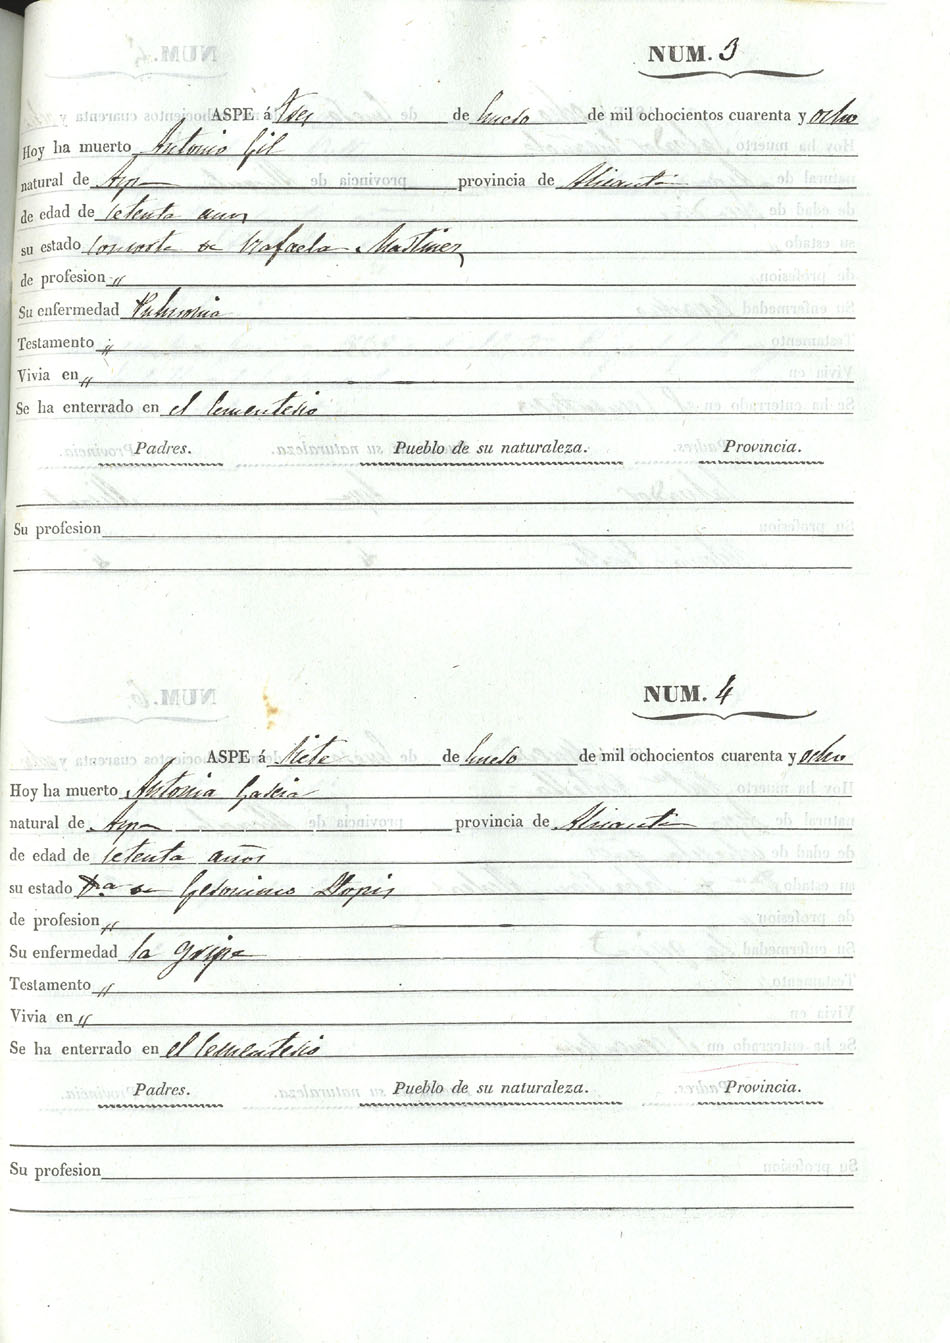 NUM. 3
ASPE á tres de Enero de mil ochocientos cuarenta y ocho
Hoy ha muerto Antonio Gil
natural de Aspe provincia de Alicante
de edad de setenta años
su estado consorte de Rafaela Martinez
de profesion "
Su enfermedad Pulmonia
Testamento "
Vivia en "
Se ha enterrado en el Cementerio
Padres. Pueblo de su naturaleza. Provincia.
Su profesion
NUM. 4
ASPE á siete de Enero de mil ochocientos cuarenta y ocho
Hoy ha muerto Antonia Garcia
natural de Aspe provincia de Alicante
de edad de setenta años
su estado Vda de Geronimo Llopis
de profesion "
Su enfermedad la gripe
Testamento "
Vivia en "
Se ha enterrado en el Cementerio
Padres. Pueblo de su naturaleza. Provincia.
Su profesion